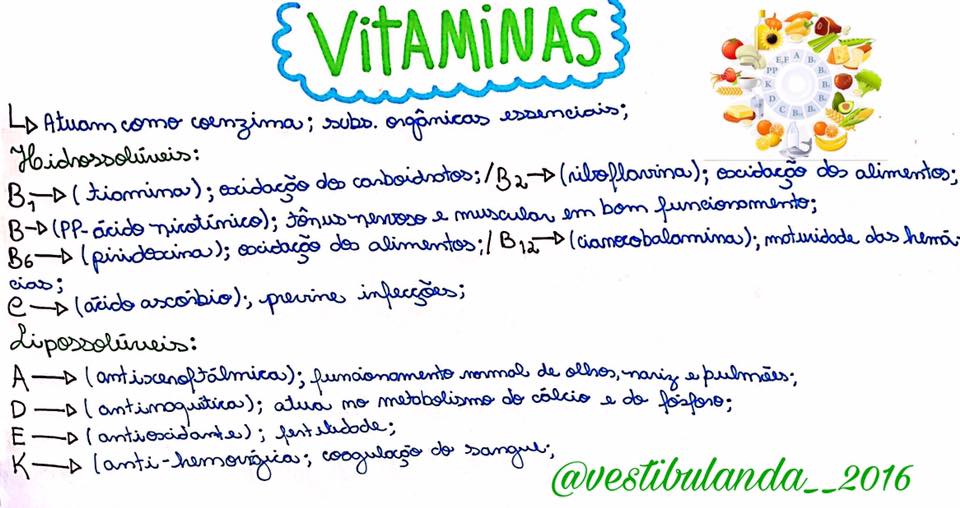 VITAMINAS
E,F A B₁
PP
K
D
C
↳ Atuam como coenzima; subs. orgânicas essenciais;
Hidrossolúveis:
B₁→(tiamina); oxidação dos carboidratos;/B₂→(riboflavina); oxidação dos alimentos;
B→(PP-ácido nicotínico); tônus nervoso e muscular em bom funcionamento;
B₆→(piridoxina); oxidação dos alimentos;/B₁₂→(cianocobalamina); maturidade das hemá-
cias;
C→(ácido ascórbio); previne infecções;
Lipossolúveis:
A→(antixeroftálmica); funcionamento normal de olhos, nariz e pulmões;
D→(antirraquítica); atua no metabolismo do cálcio e do fósforo;
E→(antioxidante); fertilidade;
K→(anti-hemorrágica; coagulação do sangue;
@vestibulanda__2016